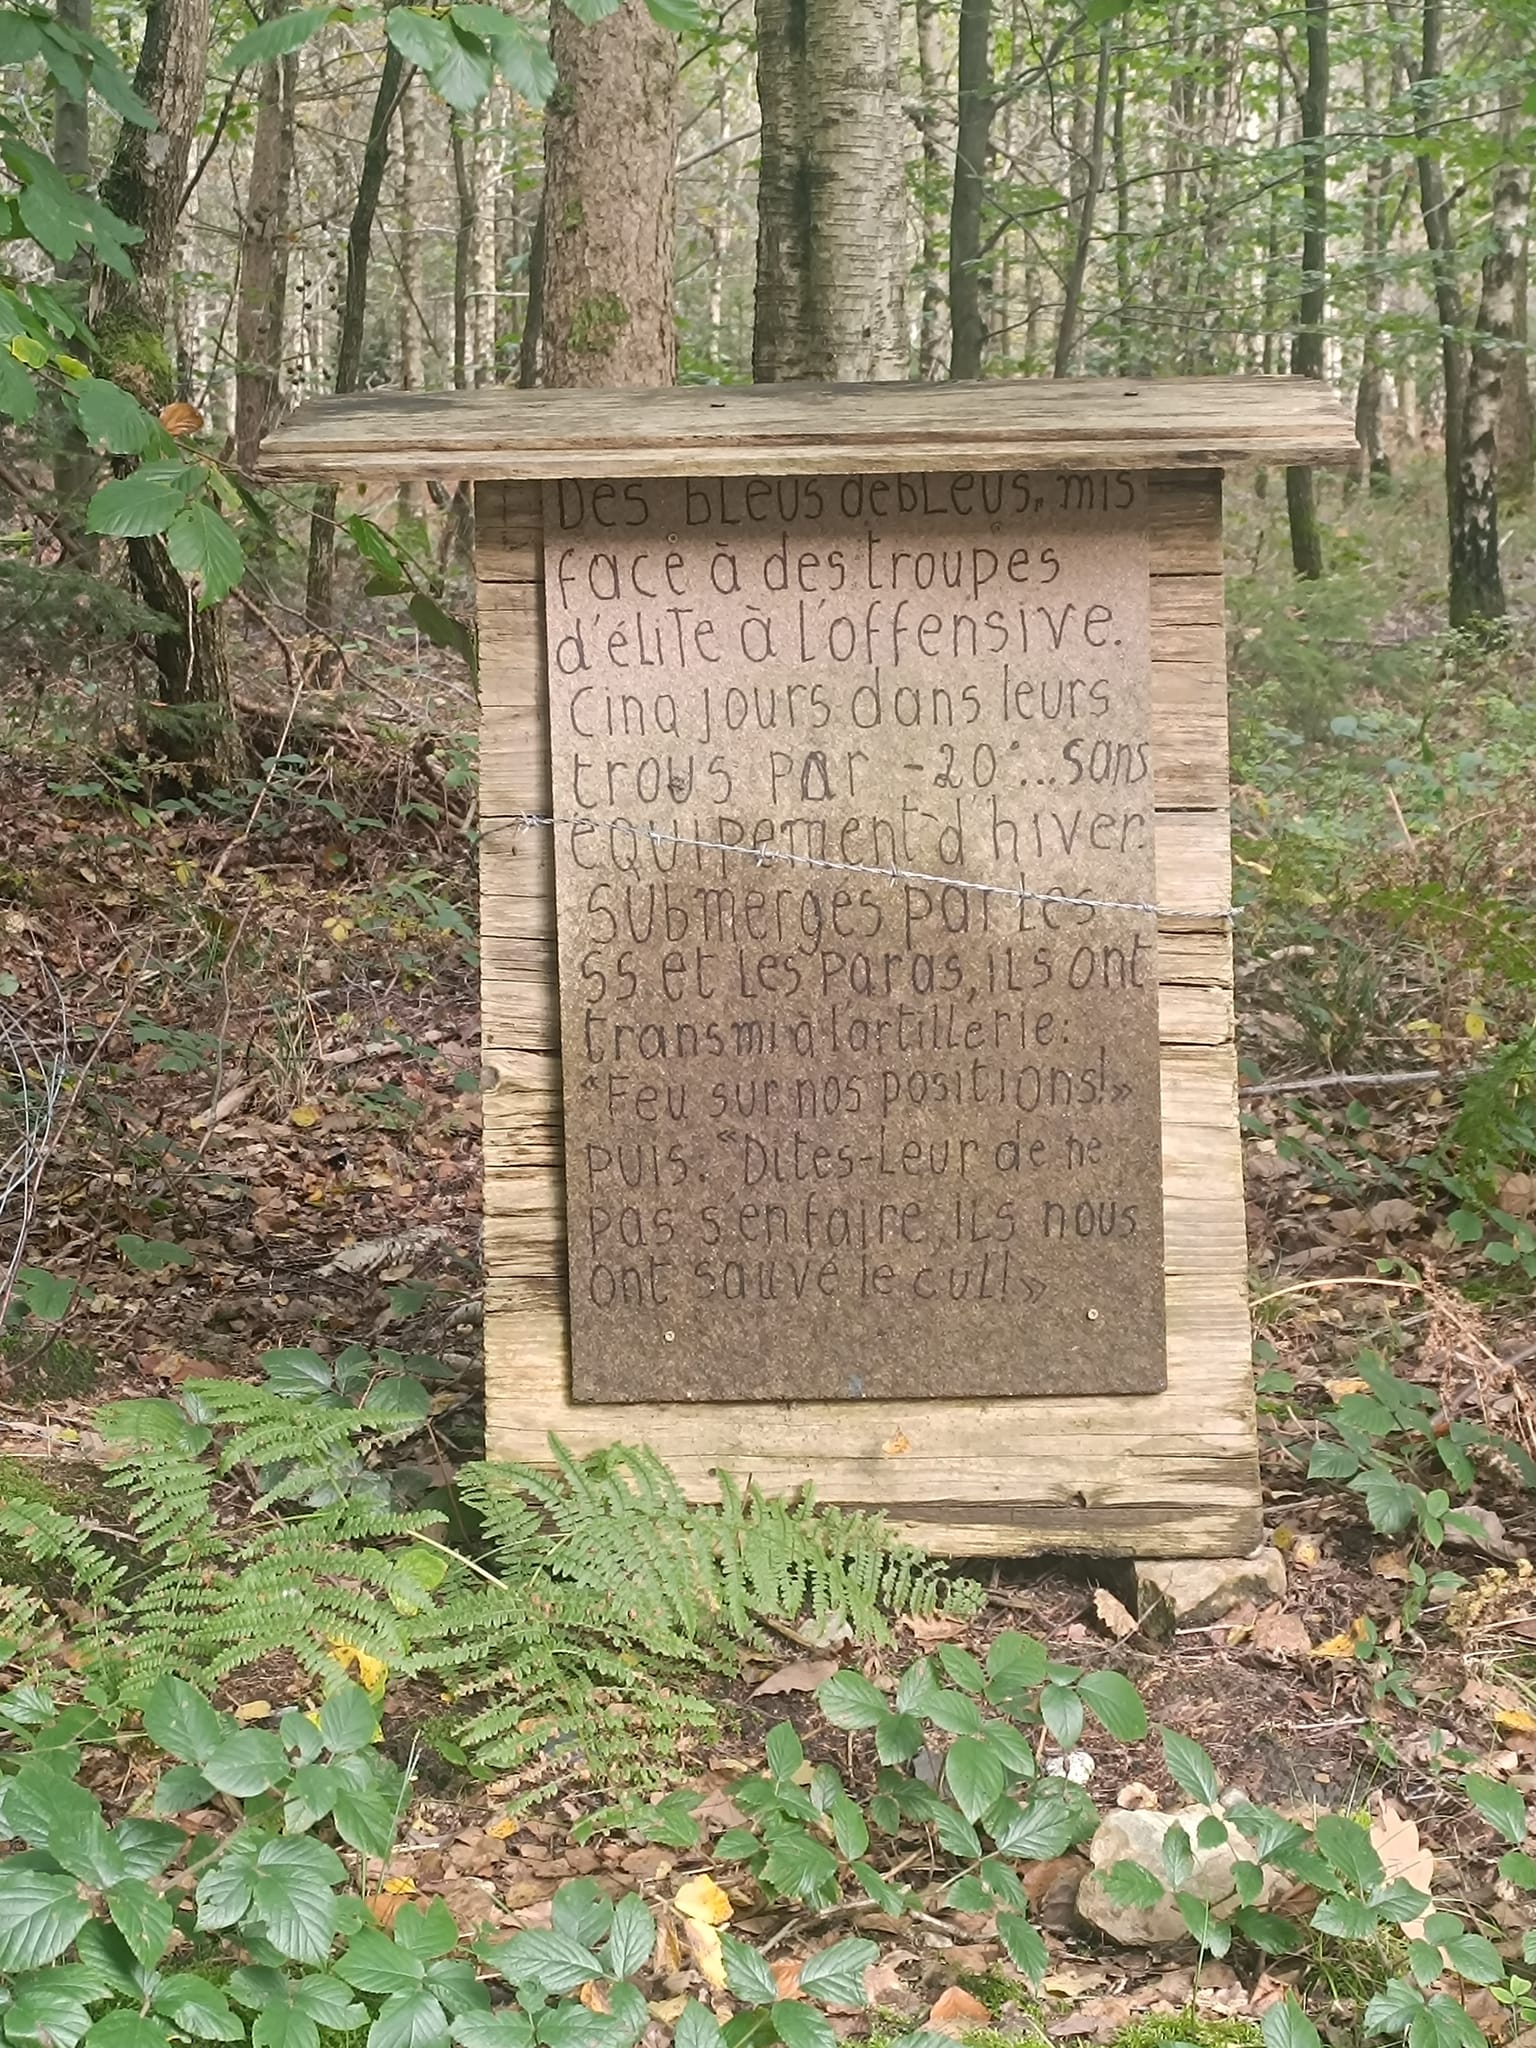 Des bleus de bleus, mis
face à des troupes
d'élite à l'offensive.
Cinq jours dans leurs
trous par -20°... sans
équipement d'hiver.
Submergés par les
SS et les paras, ils ont
transmi à l'artillerie:
"Feu sur nos positions!»
puis. "Dites-leur de ne
pas s'en faire, ils nous
ont sauvé le cul!»